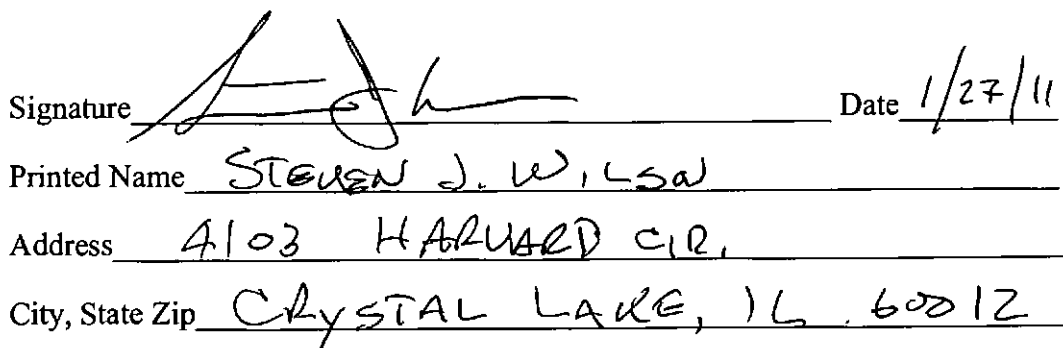 Signature Date 1/27/11
Printed Name STEVEN J. WILSON
Address 4103 HARVARD CIR.
City, State Zip CRYSTAL LAKE, IL 60012